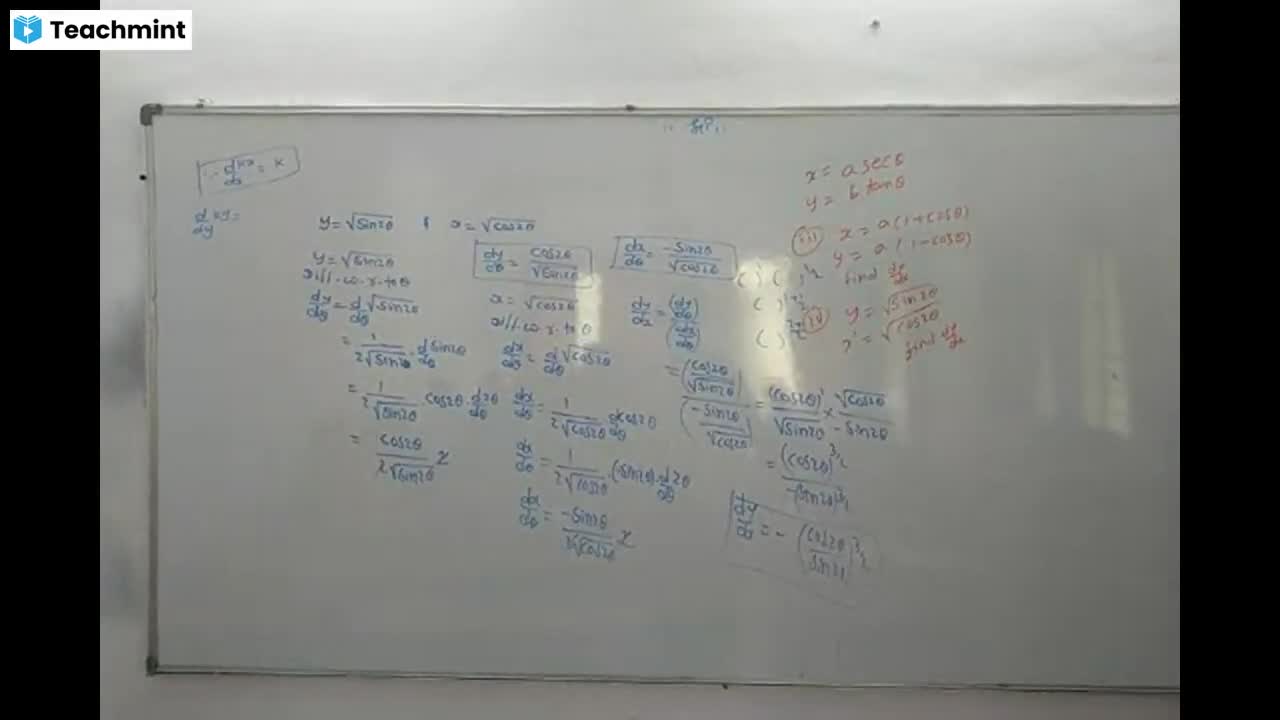 Teachmint
∵ d/dx kx = k
d/dy ky =
y = √sin2θ & x = √cos2θ
y = √sin2θ
diff. w.r. to θ
dy/dθ = d/dθ √sin2θ
= 1/2√sin2θ · d/dθ sin2θ
= 1/2√sin2θ cos2θ · d/dθ 2θ
= cos2θ/2√sin2θ 2
dy/dθ = cos2θ/√sin2θ
x = √cos2θ
diff. w.r. to θ
dx/dθ = d/dθ √cos2θ
dx/dθ = 1/2√cos2θ d/dθ cos2θ
dx/dθ = 1/2√cos2θ · (-sin2θ) · d/dθ 2θ
dx/dθ = -sin2θ/2√cos2θ 2
dx/dθ = -sin2θ/√cos2θ
dy/dx = (dy/dθ)/(dx/dθ)
= (cos2θ/√sin2θ)/(-sin2θ/√cos2θ) = (cos2θ)¹/√sin2θ × √cos2θ/-sin2θ
= (cos2θ)^3/2/-(sin2θ)^3/2
dy/dx = - (cos2θ/sin2θ)^3/2
x = a secθ
y = b tanθ
(iii) x = a(1+cosθ)
y = a(1-cosθ)
find dy/dx
(iv) y = √sin2θ
x = √cos2θ
find dy/dx